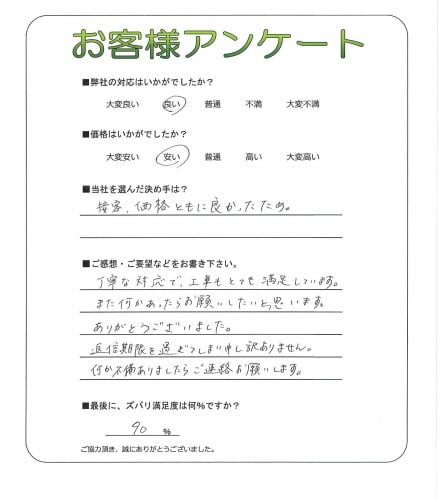 お客様アンケート
■弊社の対応はいかがでしたか?
大変良い 良い 普通 不満 大変不満
■価格はいかがでしたか?
大変安い 安い 普通 高い 大変高い
■当社を選んだ決め手は?
接客、価格ともに良かったため。
■ご感想・ご要望などをお書き下さい。
丁寧な対応で、工事もとても満足しています。
また何かあったらお願いしたいと思います。
ありがとうございました。
返信期限を過ぎてしまい申し訳ありません。
何か不備ありましたらご連絡お願いします。
■最後に、ズバリ満足度は何%ですか?
90 %
ご協力頂き、誠にありがとうございました。